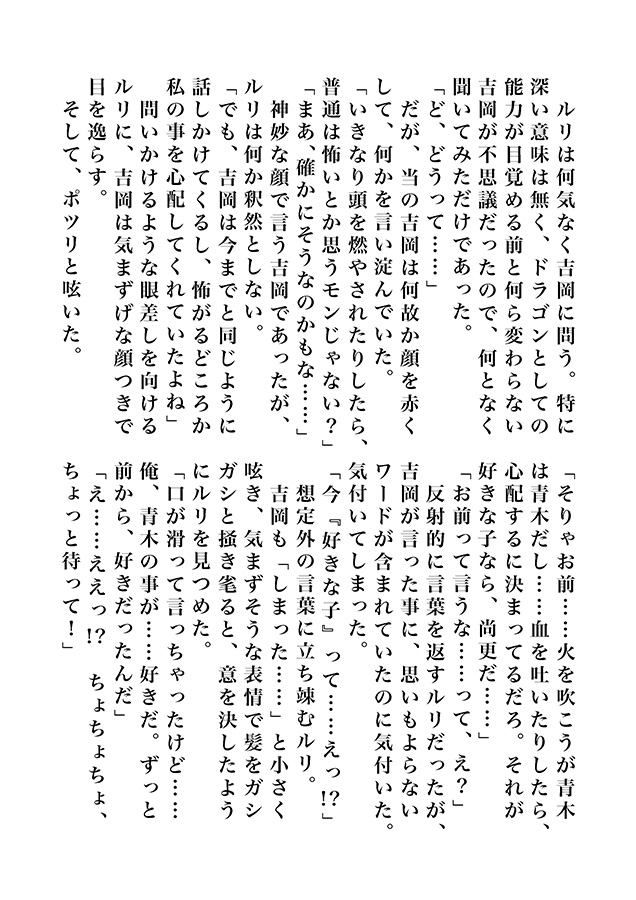 ルリは何気なく吉岡に問う。特に
深い意味は無く、ドラゴンとしての
能力が目覚める前と何ら変わらない
吉岡が不思議だったので、何となく
聞いてみただけであった。
「ど、どうって……」
　だが、当の吉岡は何故か顔を赤く
して、何かを言い淀んでいた。
「いきなり頭を燃やされたりしたら、
普通は怖いとか思うモンじゃない？」
「まあ、確かにそうなのかもな……」
　神妙な顔で言う吉岡であったが、
ルリは何か釈然としない。
「でも、吉岡は今までと同じように
話しかけてくるし、怖がるどころか
私の事を心配してくれていたよね」
　問いかけるような眼差しを向ける
ルリに、吉岡は気まずげな顔つきで
目を逸らす。
　そして、ポツリと呟いた。
「そりゃお前……火を吹こうが青木
は青木だし……血を吐いたりしたら、
心配するに決まってるだろ。それが
好きな子なら、尚更だ……」
「お前って言うな……って、え？」
　反射的に言葉を返すルリだったが、
吉岡が言った事に、思いもよらない
ワードが含まれていたのに気付いた。
気付いてしまった。
「今『好きな子』って……えっ!?」
　想定外の言葉に立ち竦むルリ。
　吉岡も「しまった……」と小さく
呟き、気まずそうな表情で髪をガシ
ガシと掻き毟ると、意を決したよう
にルリを見つめた。
「口が滑って言っちゃったけど……
俺、青木の事が……好きだ。ずっと
前から、好きだったんだ」
「え……ええっ!?　ちょちょちょ、
ちょっと待って！」